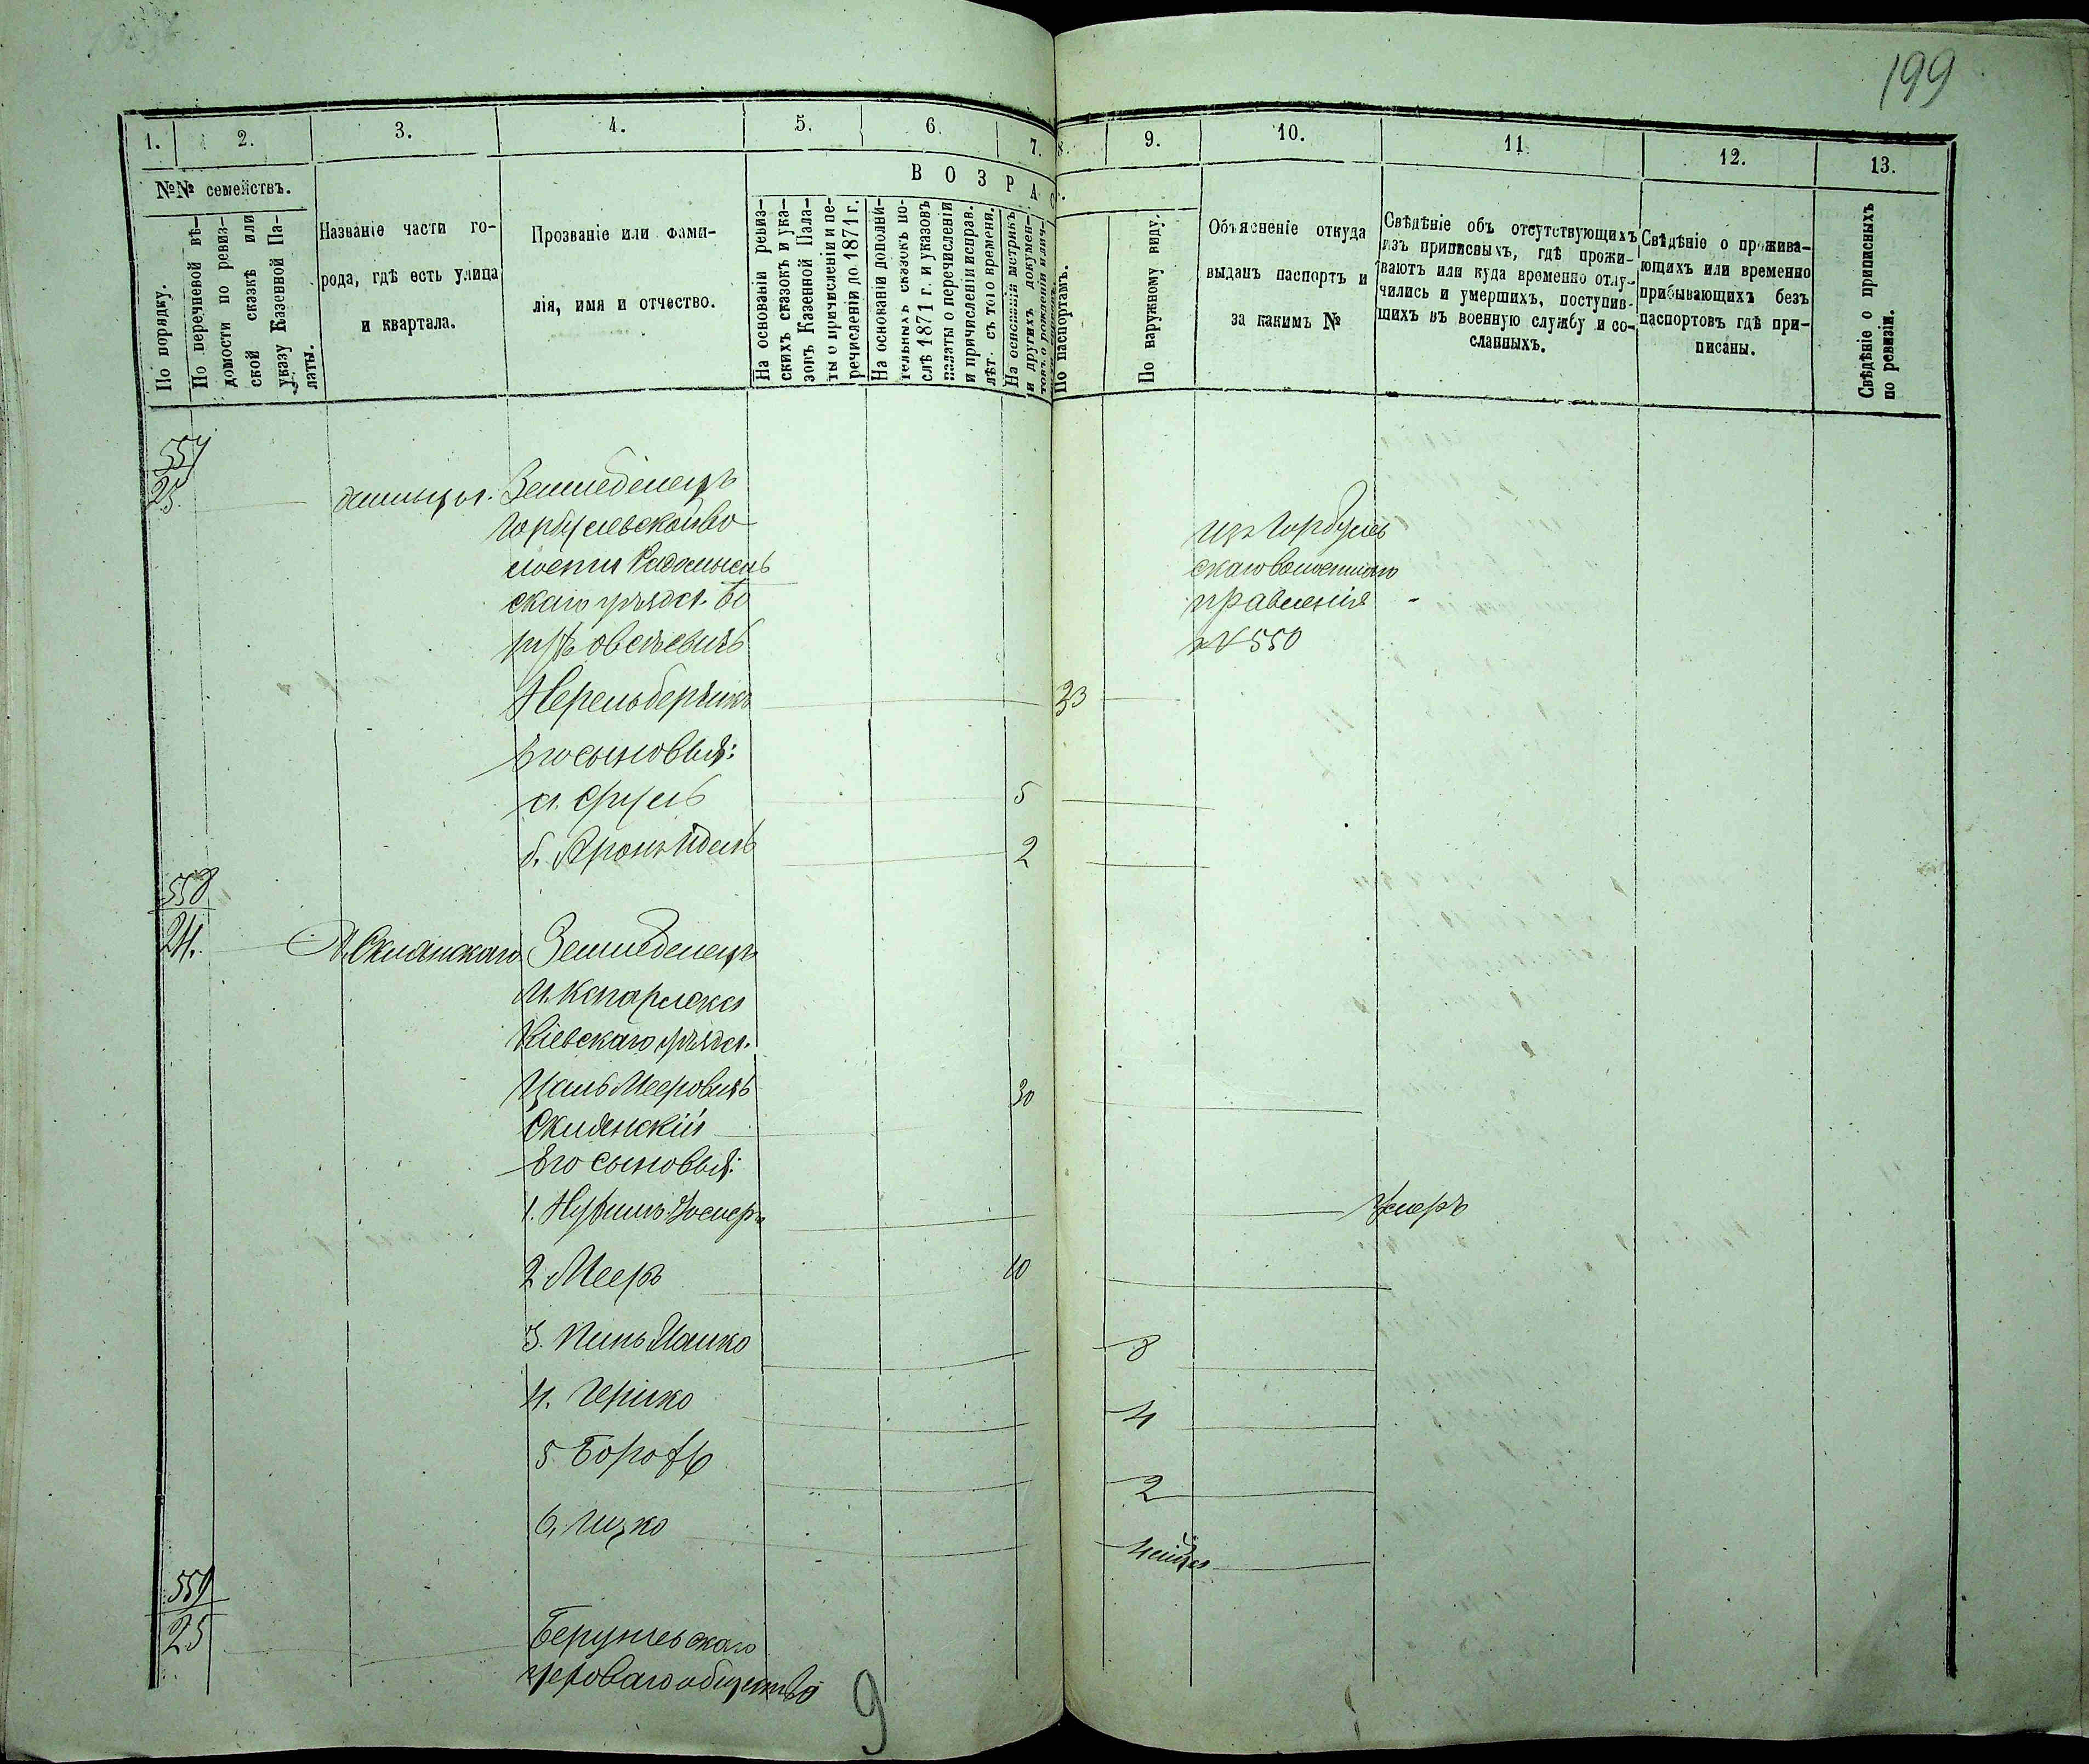 199
1. 2. 3. 4. 5. 6. 7. 8. 9. 10. 11 12. 13.
№№ семействъ.
По порядку.
По перечневой вѣ-
домости по ревиз-
ской сказкѣ или
указу Казенной Па-
латы.
Названіе части го-
рода, гдѣ есть улица
и квартала.
Прозваніе или фами-
лія, имя и отчество.
ВОЗРАС
На основаніи ревиз-
скихъ сказокъ и ука-
зовъ Казенной Пала-
ты о причисленіи и пе-
речисленіи до 1871 г.
На основаніи дополни-
тельныхъ сказокъ по-
слѣ 1871 г. и указовъ
палаты о перечисленіи
и причисленіи исправ.
лѣт. съ того времени.
На основаніи метрикъ
и другихъ докумен-
товъ о рожденіи и лич-
По паспортамъ.
По наружному виду.
Объясненіе откуда
выданъ паспортъ и
за какимъ №
Свѣдѣніе объ отсутствующихъ
изъ приписныхъ, гдѣ прожи-
ваютъ или куда временно отлу-
чились и умершихъ, поступив-
шихъ въ военную службу и со-
сланныхъ.
Свѣдѣніе о прожива-
ющихъ или временно
прибывающихъ безъ
паспортовъ гдѣ при-
писаны.
Свѣдѣніе о приписныхъ
по ревизіи.
557
23
Земледѣлецъ
Горбулевской во
лости Радомысль
скаго уѣзда Бо
рухъ Овсѣевичъ
Перельберъ 33
Его сыновья:
а. Сруль 5
б. Аронъ Идель 2
изъ Горбулев
скаго волостнаго
правленія
№ 550
558
24.
Склянскаго Земледѣлецъ
м. Кагарлика
Кіевскаго уѣзда
Цаль Мееровичъ 30
Склянскій
Его сыновья:
1. Нухимъ Іосиеръ Умеръ
2 Мееръ 10
3. Пинь 8
4. Гершко 4
5 Борохъ 2
6, Ицко
559
25
скаго
цеховаго общества
9